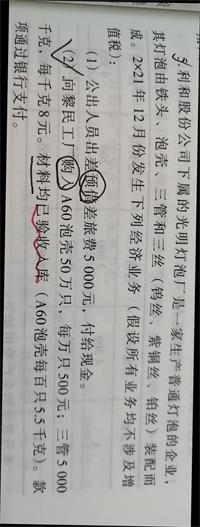 5/利和股份公司下属的光明灯泡厂是一家生产普通灯泡的企业，
其灯泡由铁头、泡壳、三管和三丝（钨丝、紫铜丝、铂丝）装配而
成。2×21年12月份发生下列经济业务（假设所有业务均不涉及增
值税）：
（1）公出人员出差预借差旅费5 000元，付给现金。
（2）向黎民工厂购入A60泡壳50万只，每万只500元；三管5 000
千克，每千克8元。材料均已验收入库（A60泡壳每百只5.5千克）。款
项通过银行支付。